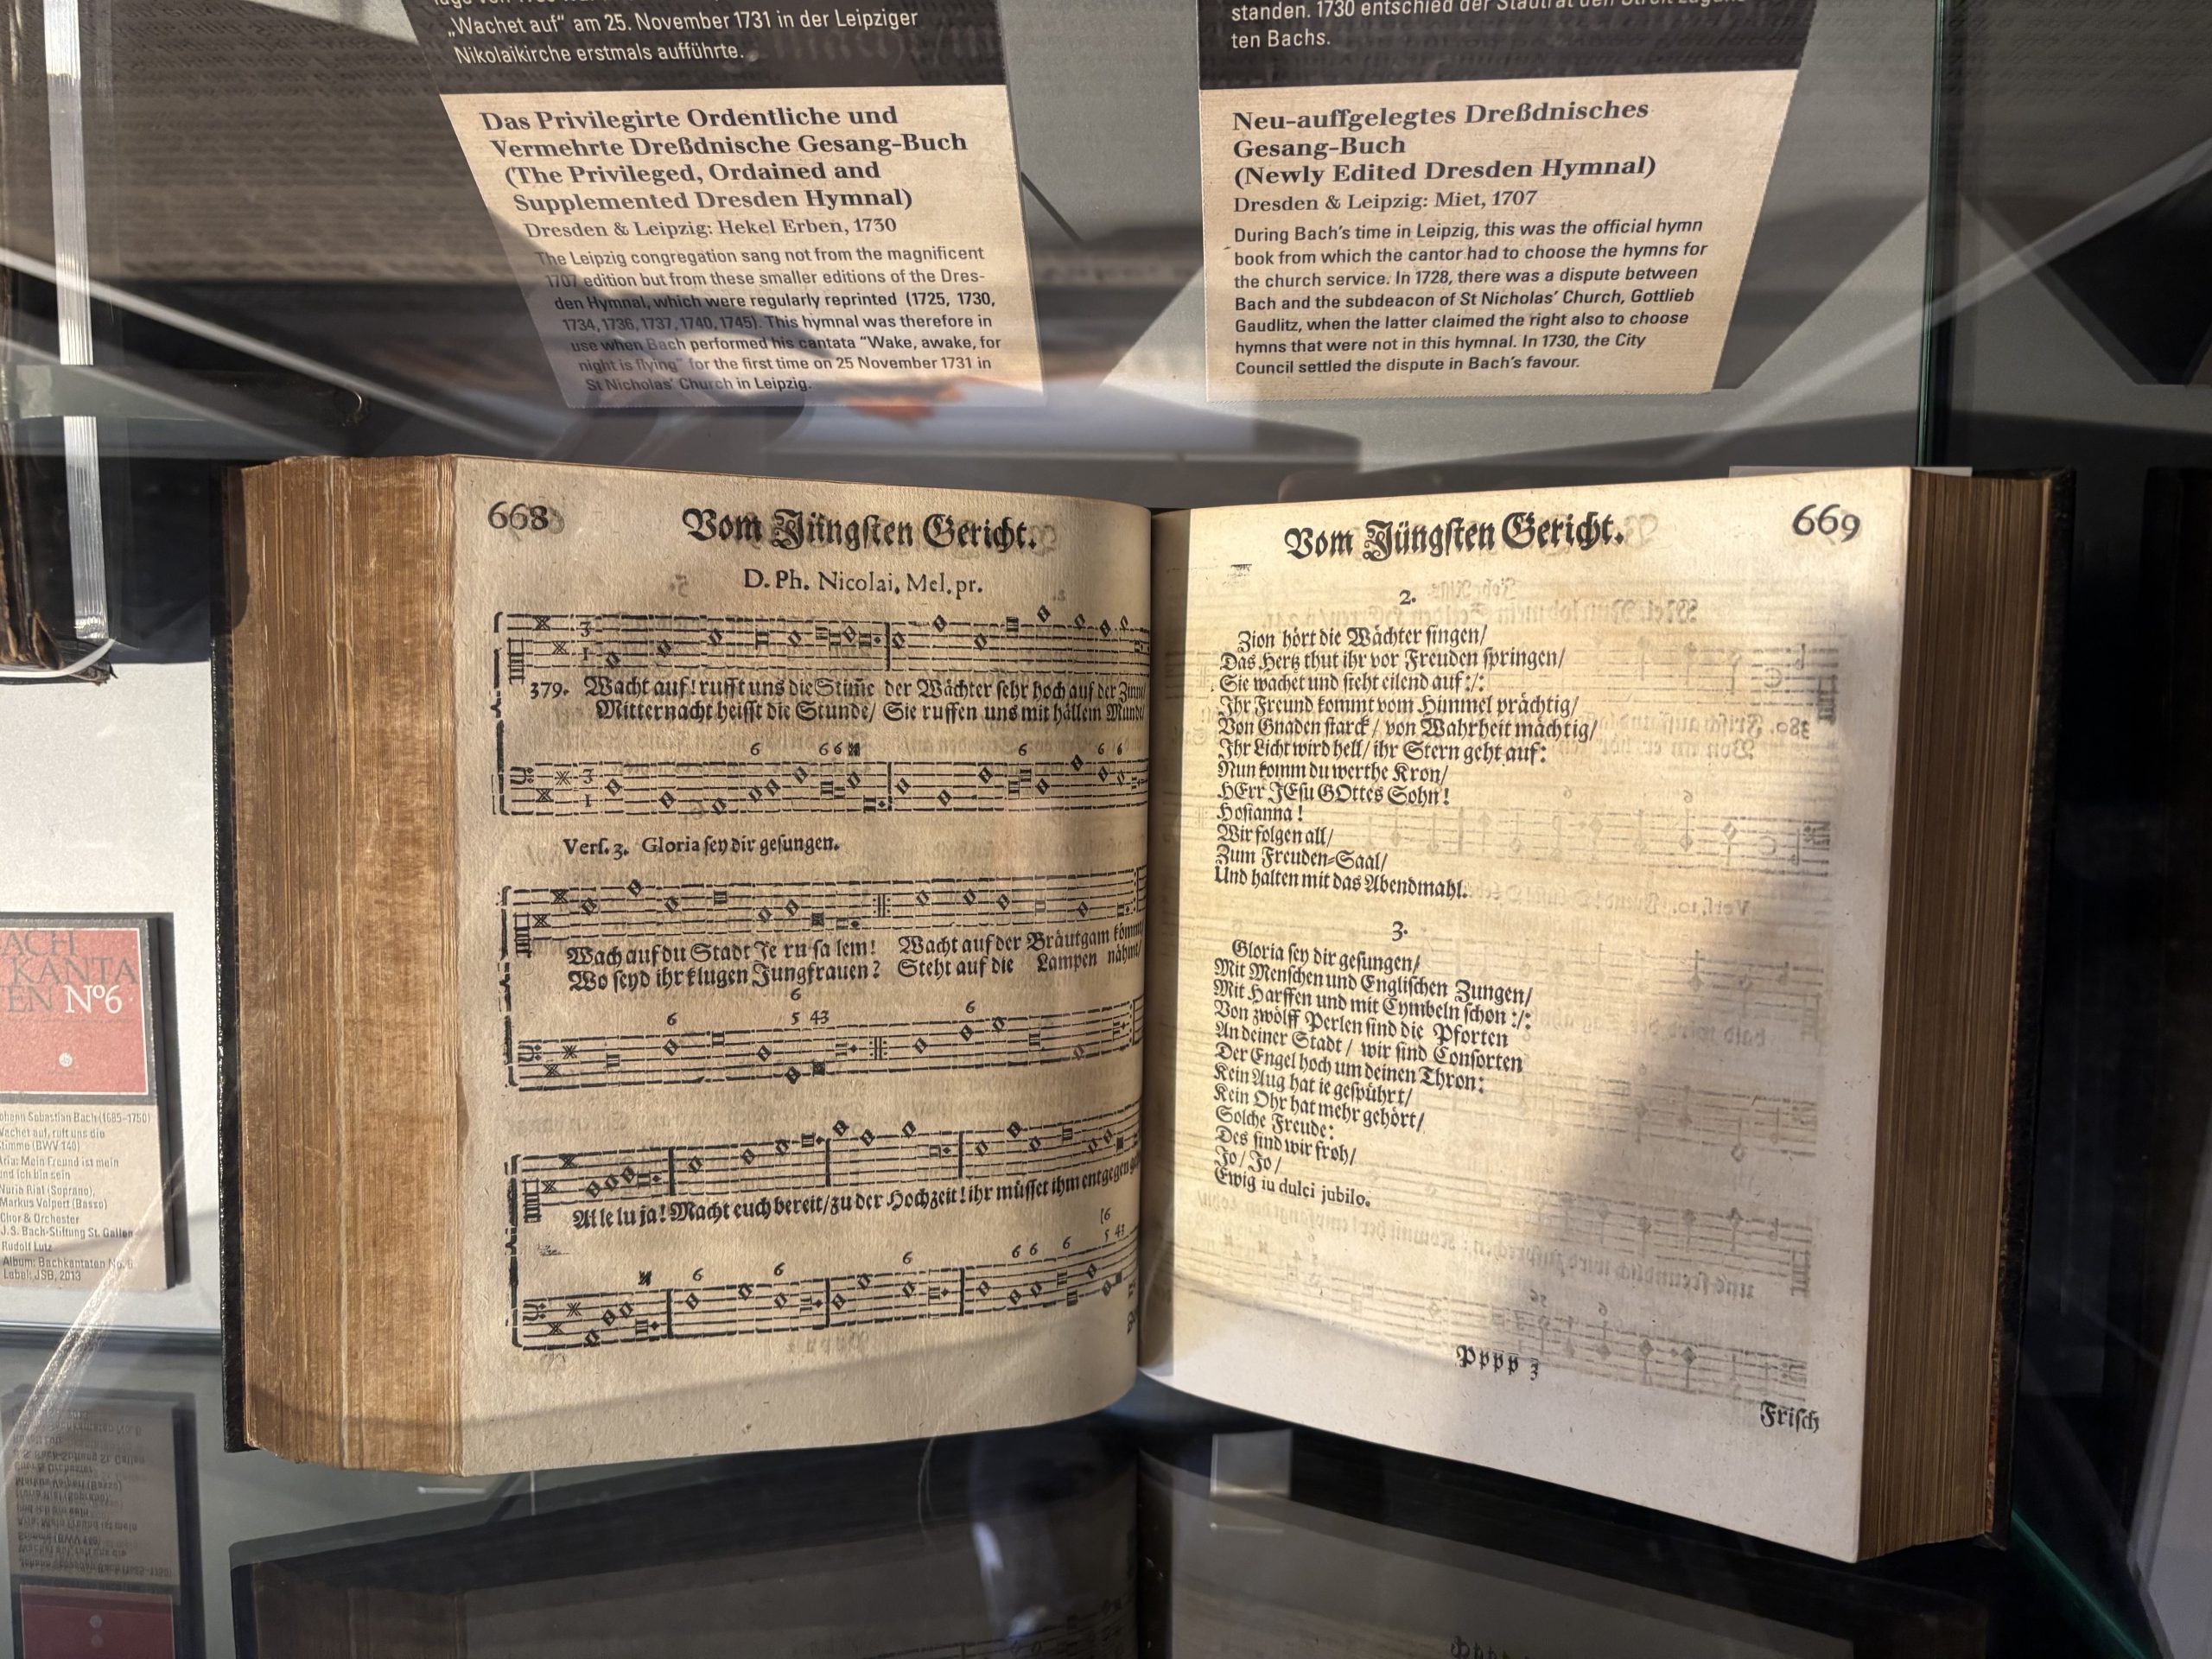 „Wachet auf“ am 25. November 1731 in der Leipziger
Nikolaikirche erstmals aufführte.
Das Privilegirte Ordentliche und
Vermehrte Dreßdnische Gesang-Buch
(The Privileged, Ordained and
Supplemented Dresden Hymnal)
Dresden & Leipzig: Hekel Erben, 1730
The Leipzig congregation sang not from the magnificent
1707 edition but from these smaller editions of the Dres-
den Hymnal, which were regularly reprinted (1725, 1730,
1734, 1736, 1737, 1740, 1745). This hymnal was therefore in
use when Bach performed his cantata “Wake, awake, for
night is flying” for the first time on 25 November 1731 in
St Nicholas’ Church in Leipzig.
standen. 1730 entschied der Stadtrat den Streit
ten Bachs.
Neu-auffgelegtes Dreßdnisches
Gesang-Buch
(Newly Edited Dresden Hymnal)
Dresden & Leipzig: Miet, 1707
During Bach’s time in Leipzig, this was the official hymn
book from which the cantor had to choose the hymns for
the church service. In 1728, there was a dispute between
Bach and the subdeacon of St Nicholas’ Church, Gottlieb
Gaudlitz, when the latter claimed the right also to choose
hymns that were not in this hymnal. In 1730, the City
Council settled the dispute in Bach’s favour.
668
Vom Jüngsten Gericht.
D. Ph. Nicolai, Mel. pr.
379. Wacht auf! rufft uns die Stim̃e der Wächter sehr hoch auf der
Mitternacht heisst die Stunde/ Sie ruffen uns mit hällem Munde/
6 6 6 6 6 6
Vers. 3. Gloria sey dir gesungen.
Wach auf du Stadt Je ru sa lem! Wacht auf der Bräutgam kömmt
Wo seyd ihr klugen Jungfrauen? Steht auf die Lampen nähmt/
6
6 5 43 6
Al le lu ja! Macht euch bereit/ zu der Hochzeit! ihr müsset ihm entgegen
6 6 6 6 6 6 5 43
669
Vom Jüngsten Gericht.
2.
Zion hört die Wächter singen/
Das Hertz thut ihr vor Freuden springen/
Sie wachet und steht eilend auf :/:
Ihr Freund kommt vom Himmel prächtig/
Von Gnaden starck/ von Wahrheit mächtig/
Ihr Licht wird hell/ ihr Stern geht auf:
Nun komm du werthe Kron/
HErr JEsu GOttes Sohn!
Hosianna!
Wir folgen all/
Zum Freuden-Saal/
Und halten mit das Abendmahl.
3.
Gloria sey dir gesungen/
Mit Menschen und Englischen Zungen/
Mit Harffen und mit Cymbeln schon :/:
Von zwölff Perlen sind die Pforten
An deiner Stadt/ wir sind Consorten
Der Engel hoch um deinen Thron:
Kein Aug hat ie gespührt/
Kein Ohr hat mehr gehört/
Solche Freude:
Des sind wir froh/
Jo/ Jo/
Ewig in dulci jubilo.
Pppp 3
Frisch
BACH
KANTA
TEN Nº6
Johann Sebastian Bach (1685–1750)
Wachet auf, ruft uns die
Stimme (BWV 140)
Aria: Mein Freund ist mein
und ich bin sein
Nuria Rial (Soprano),
Markus Volpert (Basso)
Chor & Orchester
J.S. Bach-Stiftung St. Gallen
Rudolf Lutz
Album: Bachkantaten No. 6
Label: JSB, 2013